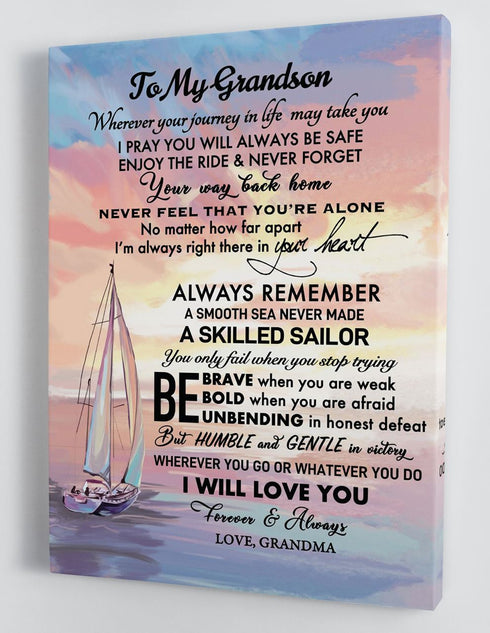 To My Grandson
Wherever your journey in life may take you
I PRAY YOU WILL ALWAYS BE SAFE
ENJOY THE RIDE & NEVER FORGET
Your way back home
NEVER FEEL THAT YOU'RE ALONE
No matter how far apart
I'm always right there in your heart
ALWAYS REMEMBER
A SMOOTH SEA NEVER MADE
A SKILLED SAILOR
You only fail when you stop trying
BE BRAVE when you are weak
BOLD when you are afraid
UNBENDING in honest defeat
But HUMBLE and GENTLE in victory
WHEREVER YOU GO OR WHATEVER YOU DO
I WILL LOVE YOU
Forever & Always
LOVE, GRANDMA